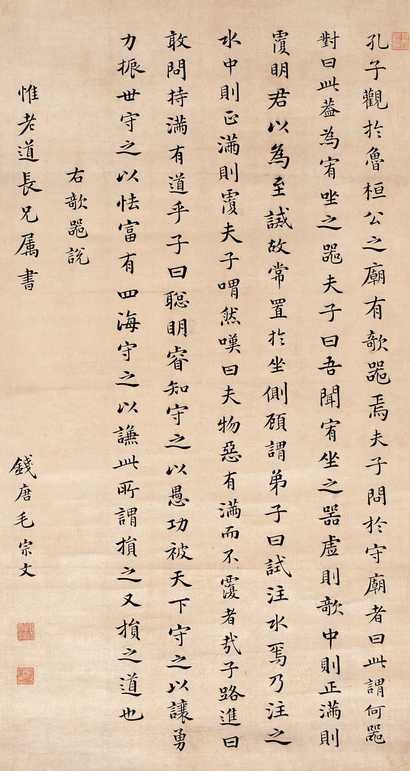 孔子觀於魯桓公之廟有欹器焉夫子問於守廟者曰此謂何器
對曰此蓋為宥坐之器夫子曰吾聞宥坐之器虛則欹中則正滿則
覆明君以為至誡故常置於坐側顧謂弟子曰試注水焉乃注之
水中則正滿則覆夫子喟然嘆曰夫物惡有滿而不覆者哉子路進曰
敢問持滿有道乎子曰聰明睿知守之以愚功被天下守之以讓勇
力振世守之以怯富有四海守之以謙此所謂損之又損之道也
右欹器說
惟老道長兄属書
錢唐毛宗文